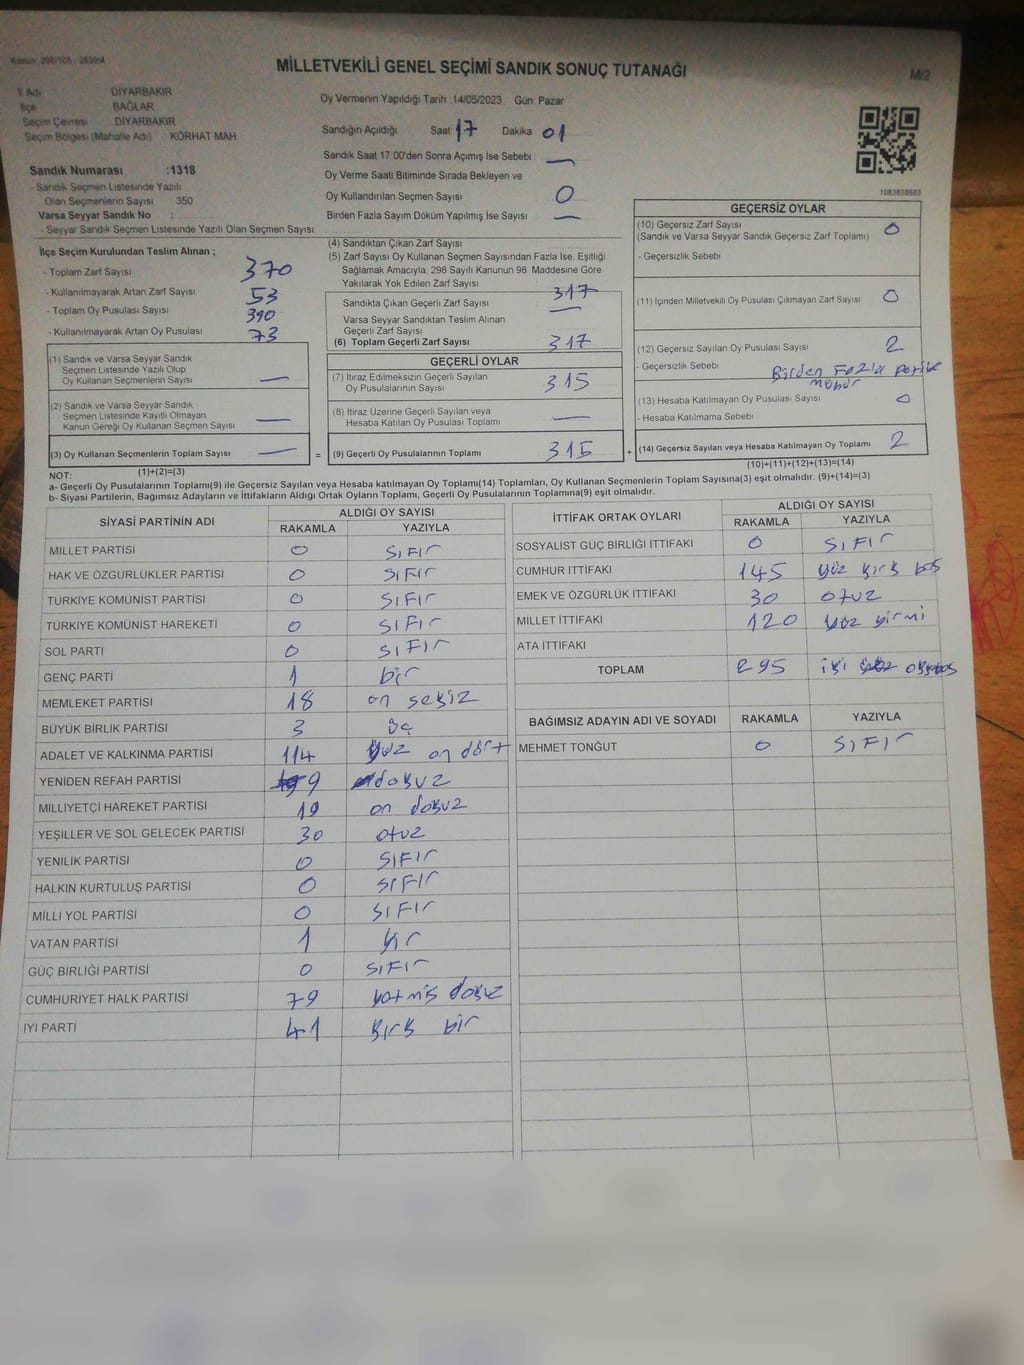 Kanun: 298/105 : 2839/4
MİLLETVEKİLİ GENEL SEÇİMİ SANDIK SONUÇ TUTANAĞI
M/2
İl Adı DİYARBAKIR
İlçe BAĞLAR
Seçim Çevresi DİYARBAKIR
Seçim Bölgesi (Mahalle Adı) KÖRHAT MAH
Sandık Numarası :1318
- Sandık Seçmen Listesinde Yazılı
Olan Seçmenlerin Sayısı 350
Varsa Seyyar Sandık No :
- Seyyar Sandık Seçmen Listesinde Yazılı Olan Seçmen Sayısı
Oy Vermenin Yapıldığı Tarih :14/05/2023 Gün: Pazar
Sandığın Açıldığı Saat 17 Dakika 01
Sandık Saat 17:00'den Sonra Açımış İse Sebebi : —
Oy Verme Saati Bitiminde Sırada Bekleyen ve
Oy Kullandırılan Seçmen Sayısı 0
Birden Fazla Sayım Döküm Yapılmış İse Sayısı —
1083838883
İlçe Seçim Kurulundan Teslim Alınan ;
- Toplam Zarf Sayısı 370
- Kullanılmayarak Artan Zarf Sayısı 53
- Toplam Oy Pusulası Sayısı 390
- Kullanılmayarak Artan Oy Pusulası 73
(1) Sandık ve Varsa Seyyar Sandık
Seçmen Listesinde Yazılı Olup
Oy Kullanan Seçmenlerin Sayısı —
(2) Sandık ve Varsa Seyyar Sandık
Seçmen Listesinde Kayıtlı Olmayan
Kanun Gereği Oy Kullanan Seçmen Sayısı —
(3) Oy Kullanan Seçmenlerin Toplam Sayısı —
(1)+(2)=(3)
(4) Sandıktan Çıkan Zarf Sayısı
(5) Zarf Sayısı Oy Kullanan Seçmen Sayısından Fazla İse, Eşitliği
Sağlamak Amacıyla, 298 Sayılı Kanunun 98. Maddesine Göre
Yakılarak Yok Edilen Zarf Sayısı
Sandıkta Çıkan Geçerli Zarf Sayısı 317
Varsa Seyyar Sandıktan Teslim Alınan
Geçerli Zarf Sayısı —
(6) Toplam Geçerli Zarf Sayısı 317
GEÇERLİ OYLAR
(7) İtiraz Edilmeksizin Geçerli Sayılan
Oy Pusulalarının Sayısı 315
(8) İtiraz Üzerine Geçerli Sayılan veya
Hesaba Katılan Oy Pusulası Toplamı —
= (9) Geçerli Oy Pusulalarının Toplamı 315 +
GEÇERSİZ OYLAR
(10) Geçersiz Zarf Sayısı 0
(Sandık ve Varsa Seyyar Sandık Geçersiz Zarf Toplamı)
- Geçersizlik Sebebi
(11) İçinden Milletvekili Oy Pusulası Çıkmayan Zarf Sayısı 0
(12) Geçersiz Sayılan Oy Pusulası Sayısı 2
- Geçersizlik Sebebi Birden Fazla
mühür
(13) Hesaba Katılmayan Oy Pusulası Sayısı 0
- Hesaba Katılmama Sebebi
(14) Geçersiz Sayılan veya Hesaba Katılmayan Oy Toplamı 2
(10)+(11)+(12)+(13)=(14)
NOT:
a- Geçerli Oy Pusulalarının Toplamı(9) ile Geçersiz Sayılan veya Hesaba katılmayan Oy Toplamı(14) Toplamları, Oy Kullanan Seçmenlerin Toplam Sayısına(3) eşit olmalıdır. (9)+(14)=(3)
b- Siyasi Partilerin, Bağımsız Adayların ve İttifakların Aldığı Ortak Oyların Toplamı, Geçerli Oy Pusulalarının Toplamına(9) eşit olmalıdır.
SİYASİ PARTİNİN ADI ALDIĞI OY SAYISI
RAKAMLA YAZIYLA
MİLLET PARTİSİ 0 SIFIr
HAK VE ÖZGÜRLÜKLER PARTİSİ 0 SIFIr
TÜRKİYE KOMÜNİST PARTİSİ 0 SIFIr
TÜRKİYE KOMÜNİST HAREKETİ 0 SIFIr
SOL PARTİ 0 SIFIr
GENÇ PARTİ 1 bir
MEMLEKET PARTİSİ 18 on sekiz
BÜYÜK BİRLİK PARTİSİ 3 üç
ADALET VE KALKINMA PARTİSİ 114 yüz on dört
YENİDEN REFAH PARTİSİ 9 dokuz
MİLLİYETÇİ HAREKET PARTİSİ 19 on dokuz
YEŞİLLER VE SOL GELECEK PARTİSİ 30 otuz
YENİLİK PARTİSİ 0 SIFIr
HALKIN KURTULUŞ PARTİSİ 0 SIFIr
MİLLİ YOL PARTİSİ 0 SIFIr
VATAN PARTİSİ 1 bir
GÜÇ BİRLİĞİ PARTİSİ 0 SIFIr
CUMHURİYET HALK PARTİSİ 79 yetmiş dokuz
İYİ PARTİ 41 kırk bir
İTTİFAK ORTAK OYLARI ALDIĞI OY SAYISI
RAKAMLA YAZIYLA
SOSYALİST GÜÇ BİRLİĞİ İTTİFAKI 0 SIFIr
CUMHUR İTTİFAKI 145 yüz kırk beş
EMEK VE ÖZGÜRLÜK İTTİFAKI 30 otuz
MİLLET İTTİFAKI 120 yüz yirmi
ATA İTTİFAKI
TOPLAM 295 iki
BAĞIMSIZ ADAYIN ADI VE SOYADI RAKAMLA YAZIYLA
MEHMET TONĞUT 0 SIFIr